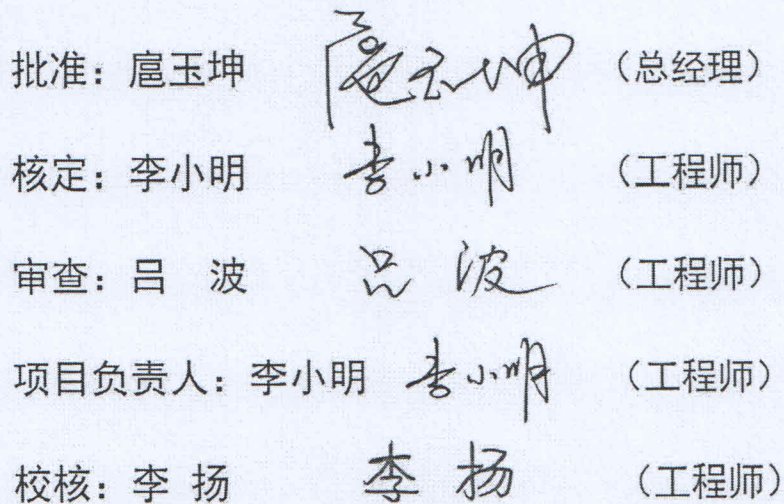 批准：扈玉坤 扈玉坤 （总经理）
核定：李小明 李小明 （工程师）
审查：吕 波 吕波 （工程师）
项目负责人：李小明 李小明 （工程师）
校核：李 扬 李扬 （工程师）